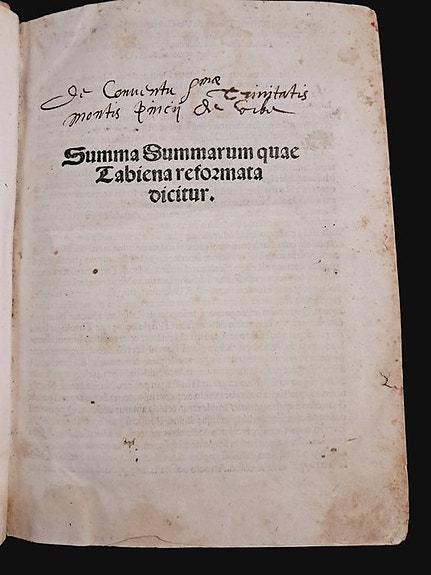 De Conventu s.mae Trinitatis
montis pincij de vrbe
Summa Summarum quae
Tabiena reformata
dicitur.